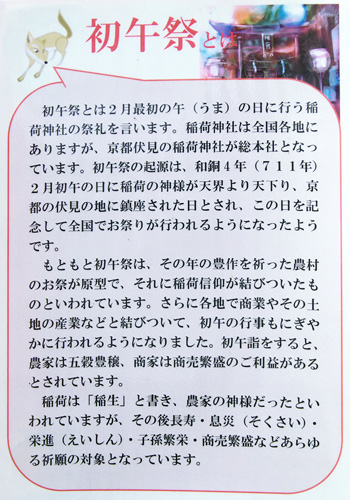 初午祭とは
初午祭とは2月最初の午（うま）の日に行う稲
荷神社の祭礼を言います。稲荷神社は全国各地に
ありますが、京都伏見の稲荷神社が総本社となっ
ています。初午祭の起源は、和銅4年（711年）
2月初午の日に稲荷の神様が天界より天下り、京
都の伏見の地に鎮座された日とされ、この日を記
念して全国でお祭りが行われるようになったよう
です。
もともと初午祭は、その年の豊作を祈った農村
のお祭が原型で、それに稲荷信仰が結びついたも
のといわれています。さらに各地で商業やその土
地の産業などと結びついて、初午の行事もにぎや
かに行われるようになりました。初午詣をすると、
農家は五穀豊穣、商家は商売繁盛のご利益がある
とされています。
稲荷は「稲生」と書き、農家の神様だったとい
われていますが、その後長寿・息災（そくさい）・
栄進（えいしん）・子孫繁栄・商売繁盛などあらゆ
る祈願の対象となっています。